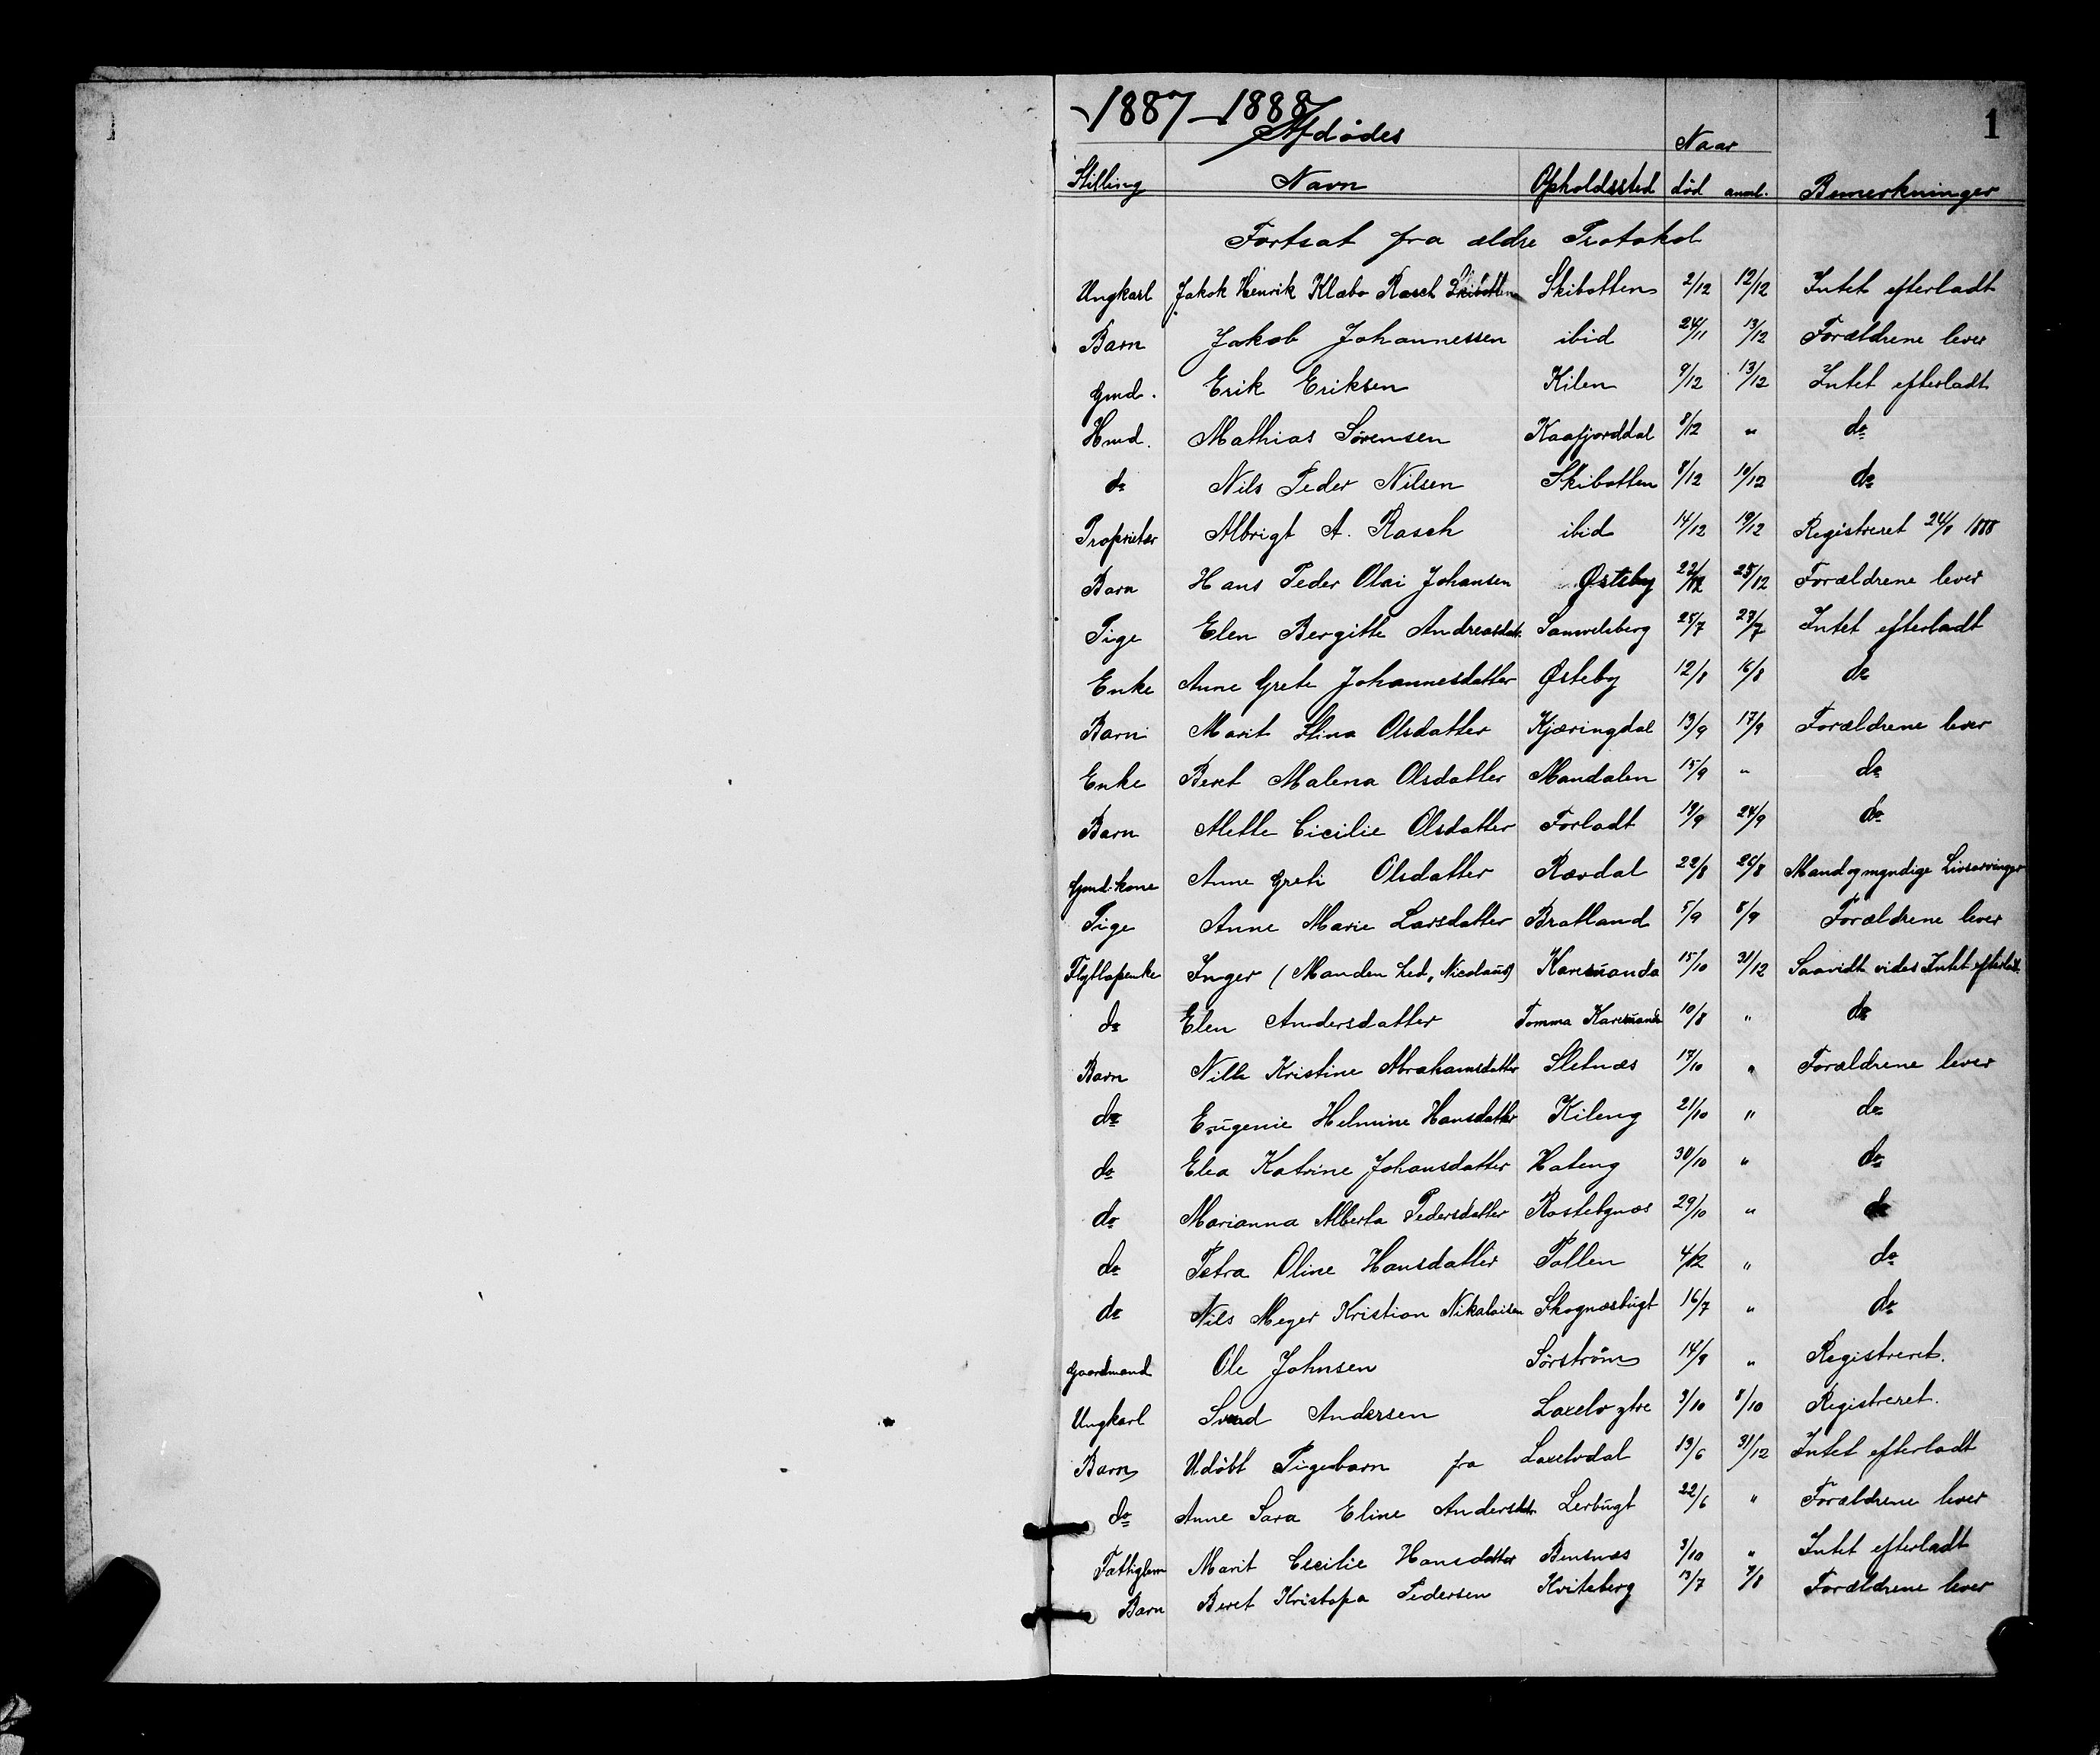 1887–1888
1
Afdødes
Naar
Stilling Navn Opholdssted død anml. Bemerkninger
Fortsat fra ældre Protokol
Ungkarl Jakob Henrik Klæbo Rasch Skibotten Skibotten 2/12 12/12 Intet efterladt
Barn Jakob Johannessen ibid 24/11 13/12 Forældrene lever
Gmd. Erik Eriksen Kilen 9/12 13/12 Intet efterladt
Hmd. Mathias Sørensen Kaafjorddal 8/12 " do
do Nils Peder Nilsen Skibotten 8/12 10/12 do
Proprietær Albrigt A. Rasch ibid 14/12 19/12 Registreret 24/8 1888
Barn Hans Peder Olai Johansen Østeby 22/12 25/12 Forældrene lever
Pige Elen Bergitte Andreasdat. Samuelsberg 25/7 29/7 Intet efterladt
Enke Anne Grete Johannesdatter Østeby 12/8 16/8 do
Barn Marit Stina Olsdatter Kjæringdal 13/9 17/9 Forældrene lever
Enke Beret Malena Olsdatter Mandalen 15/9 " do
Barn Mette Cicilie Olsdatter Forladt 19/9 24/9 do
Gmd. kone Anne Greti Olsdatter Rævdal 22/8 26/8 Mand og myndige Livsarvinger
Pige Anne Marie Larsdatter Bratland 5/9 8/9 Forældrene lever
Flytlapenke Inger (Manden hed, Nicolaus) Karesuanda 15/10 31/12 Saavidt vides Intet efterladt
do Elen Andersdatter Tomma Karesuanda 10/8 " do
Barn Nille Kristine Abrahamsdatter Sletnæs 17/10 " Forældrene lever
do Eugenie Helmine Hansdatter Kileng 21/10 " do
do Elea Katrine Johansdatter Hateng 30/10 " do
do Marianna Alberta Pedersdatter Rastebynæs 29/10 " do
do Petra Oline Hansdatter Pollen 4/12 " do
do Nils Meyer Kristian Nikolaisen Skognæsbugt 16/7 " do
Gaardmand Ole Johnsen Sørstrøm 14/9 " Registreret.
Ungkarl Svend Andersen Laxelv ytre 3/10 8/10 Registreret.
Barn Udøbt Pigebarn fra Laxelvdal 13/6 31/12 Intet efterladt
do Anne Sara Eline Andersdtr. Lerbugt 22/6 " Forældrene lever
Fattiglem Marit Cecilie Hansdatter Bensnes 3/10 " Intet efterladt
Barn Beret Kristofa Pedersen Kviteberg 13/7 9/8 Forældrene lever